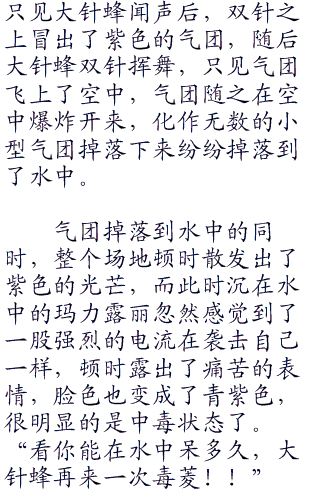 只见大针蜂闻声后，双针之
上冒出了紫色的气团，随后
大针蜂双针挥舞，只见气团
飞上了空中，气团随之在空
中爆炸开来，化作无数的小
型气团掉落下来纷纷掉落到
了水中。
气团掉落到水中的同
时，整个场地顿时散发出了
紫色的光芒，而此时沉在水
中的玛力露丽忽然感觉到了
一股强烈的电流在袭击自己
一样，顿时露出了痛苦的表
情，脸色也变成了青紫色，
很明显的是中毒状态了。
“看你能在水中呆多久，大
针蜂再来一次毒菱！！”